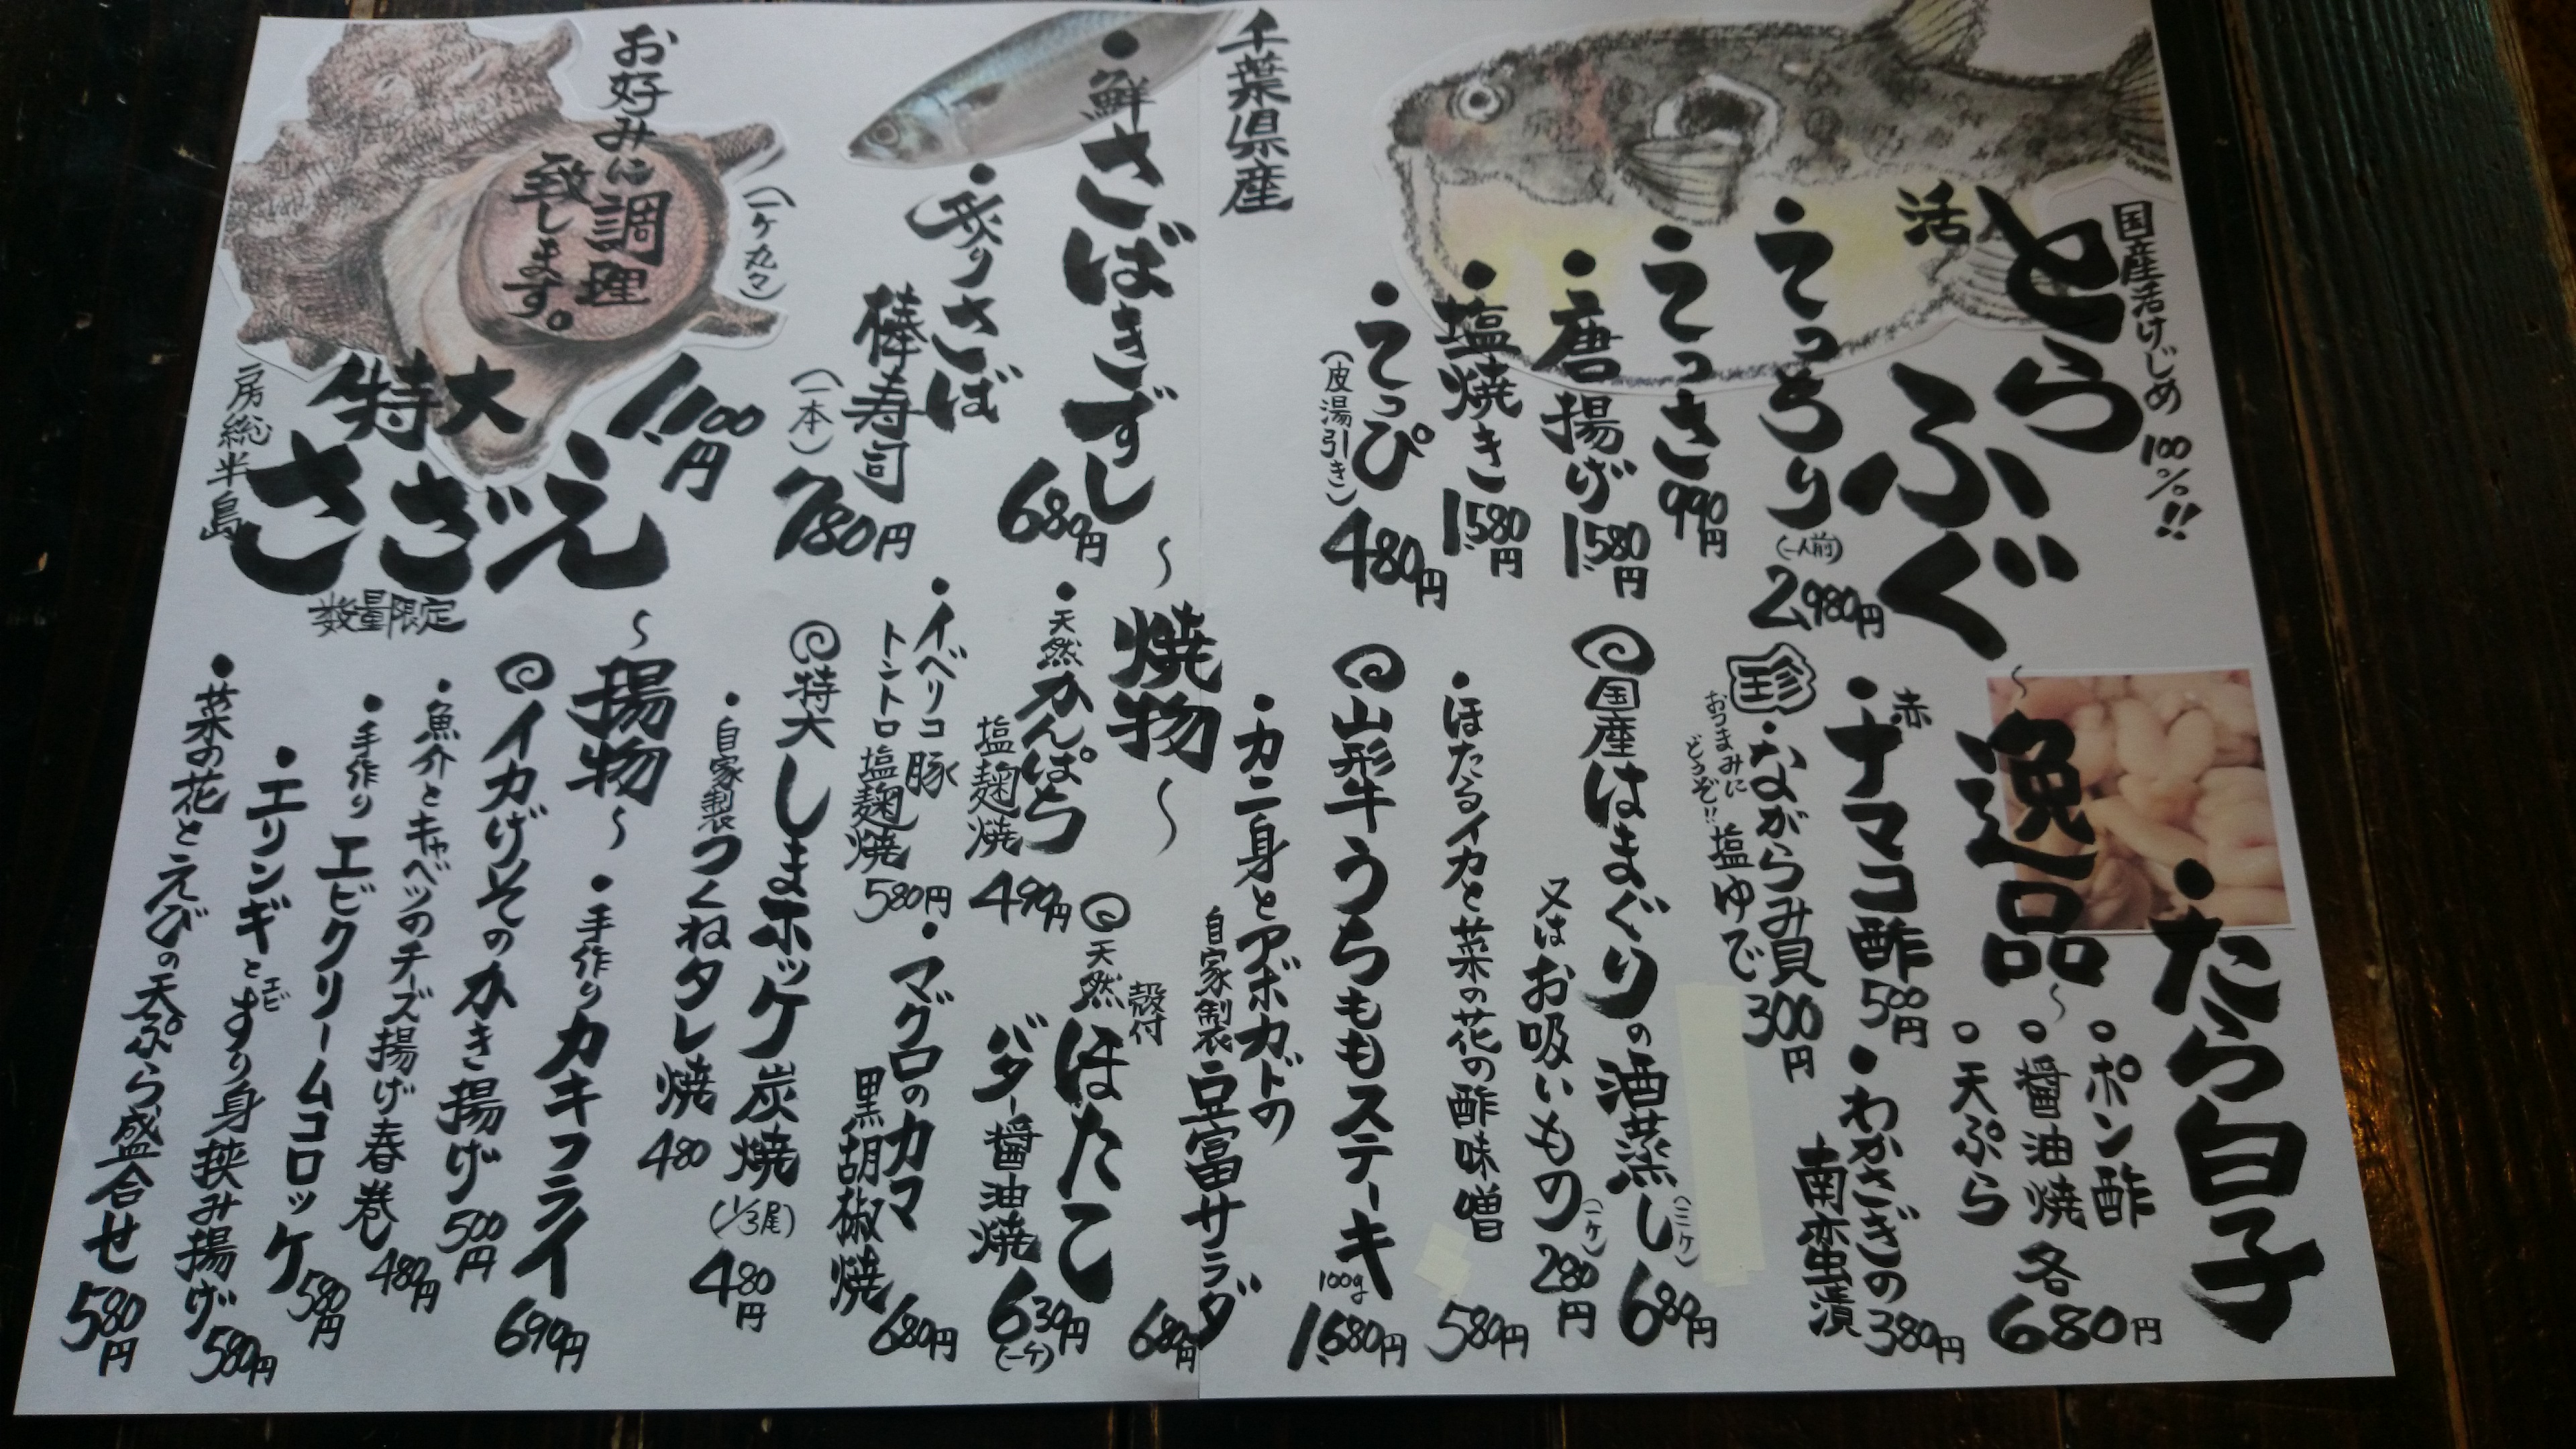 国産活けじめ100%!!
活とらふぐ
・てっちり(一人前)2,980円
・てっさ990円
・唐揚げ1,580円
・塩焼き1,580円
・てっぴ480円
(皮湯引き)
千葉県産
・鮮さばきずし680円
・炙りさば
棒寿司
(一本)780円
(一ヶ丸々)
お好みに調理
致します。
1,100円
特大
さざえ
房総半島
数量限定
・たら白子
○ポン酢
○醤油焼
○天ぷら
各680円
〜逸品〜
赤
・ナマコ酢500円
・わかさぎの
南蛮漬380円
珍
・ながらみ貝
塩ゆで300円
おつまみに
どうぞ!!
国産はまぐりの酒蒸し(三ケ)680円
又はお吸いもの(一ケ)280円
・ほたるイカと菜の花の酢味噌580円
山形牛うちももステーキ100g1,680円
・カニ身とアボカドの
自家製豆富サラダ680円
〜焼物〜
・天然かんぱち
塩麹焼490円
殻付
天然ほたて
バター醤油焼630円(一ケ)
・イベリコ豚
トントロ塩麹焼580円
・マグロのカマ
黒胡椒焼680円
特大しまホッケ炭焼(1/3尾)480円
・自家製つくねタレ焼480
〜揚物〜
・手作りカキフライ690円
イカげそのかき揚げ500円
・魚介とキャベツのチーズ揚げ春巻480円
・手作りエビクリームコロッケ580円
・エリンギとエビすり身挟み揚げ580円
・菜の花とえびの天ぷら盛合せ580円